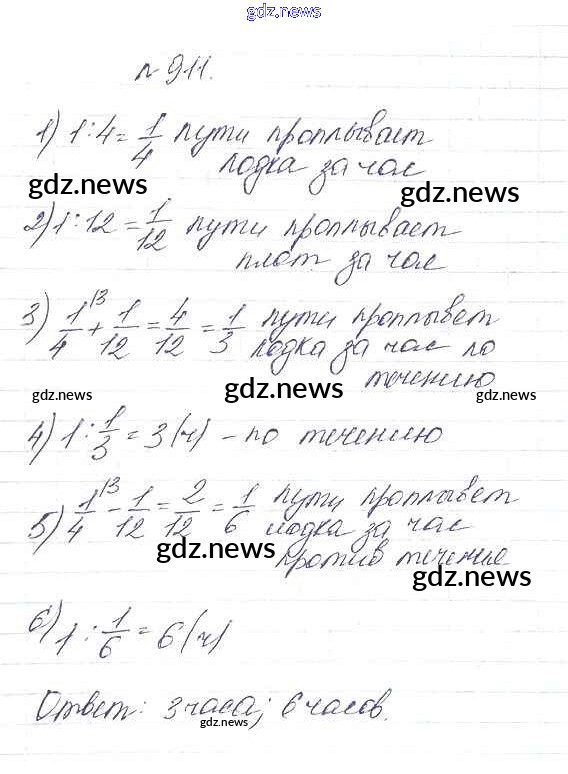 gdz.news
№911.
1) 1:4=1/4 пути проплывает
лодка за час
gdz.news gdz.news
2) 1:12=1/12 пути проплывает
плот за час
3) 1/4 \3 + 1/12 = 4/12 = 1/3 пути проплывет
лодка за час по
течению
gdz.news gdz.news gdz.news
4) 1:1/3=3(ч) - по течению
5) 1/4 \3 - 1/12 = 2/12 = 1/6 пути проплывет
лодка за час
против течение
gdz.news gdz.news
6) 1:1/6=6(ч)
Ответ: 3 часа; 6 часов.
gdz.news